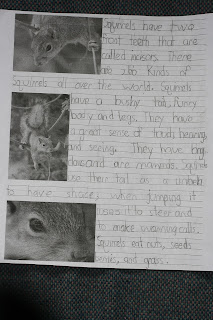 Squirrels have four
front teeth that are
called incisors. There
are 260 kinds of
squirrels all over the world. Squirrels
have a bushy tail, furry
body and legs. They have
a great sense of touch, hearing
and seeing. They have long
claws and are mammals. Squirrels
use their tail as a umbrella
to have shade, when jumping it
uses it to steer and
to make warning calls.
Squirrels eat nuts, seeds
berries, and grass.